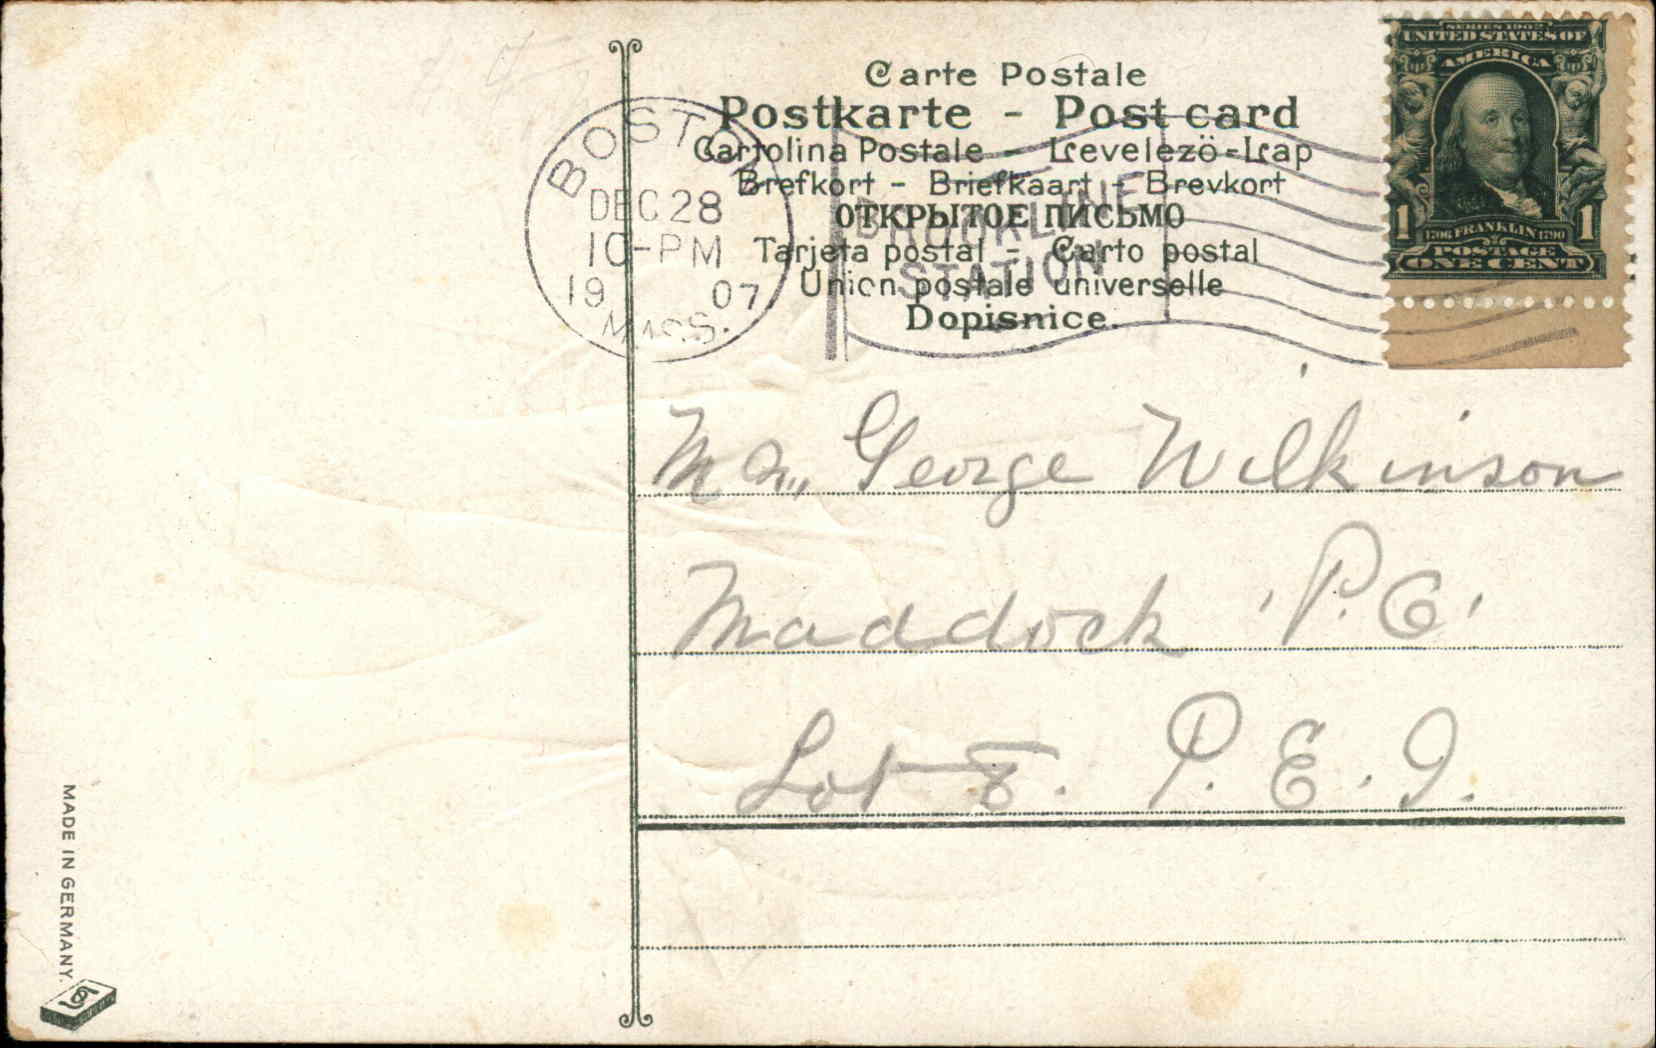 Carte Postale
Postkarte - Post card
Cartolina Postale - Levelezö-Lap
Brefkort - Briefkaart - Brevkort
ОТКРЫТОЕ ПИСЬМО
Tarjeta postal - Carto postal
Union postale universelle
Dopisnice.
BOSTON
DEC 28
10-PM
19 07
MASS.
BROOKLINE
STATION
SERIES 1902
UNITED STATES OF
AMERICA
1 1706 FRANKLIN 1790 1
POSTAGE
ONE CENT
Mr. George Wilkinson
Maddock 'P.O'
Lot P. E. I.
MADE IN GERMANY.